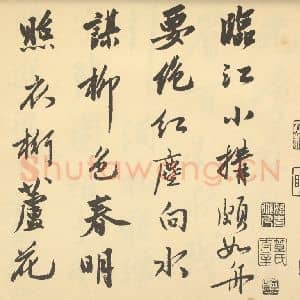 臨江小構頗如舟
要絕紅塵向水
謀柳色春明
照衣桁蘆花
Shufawang.CN